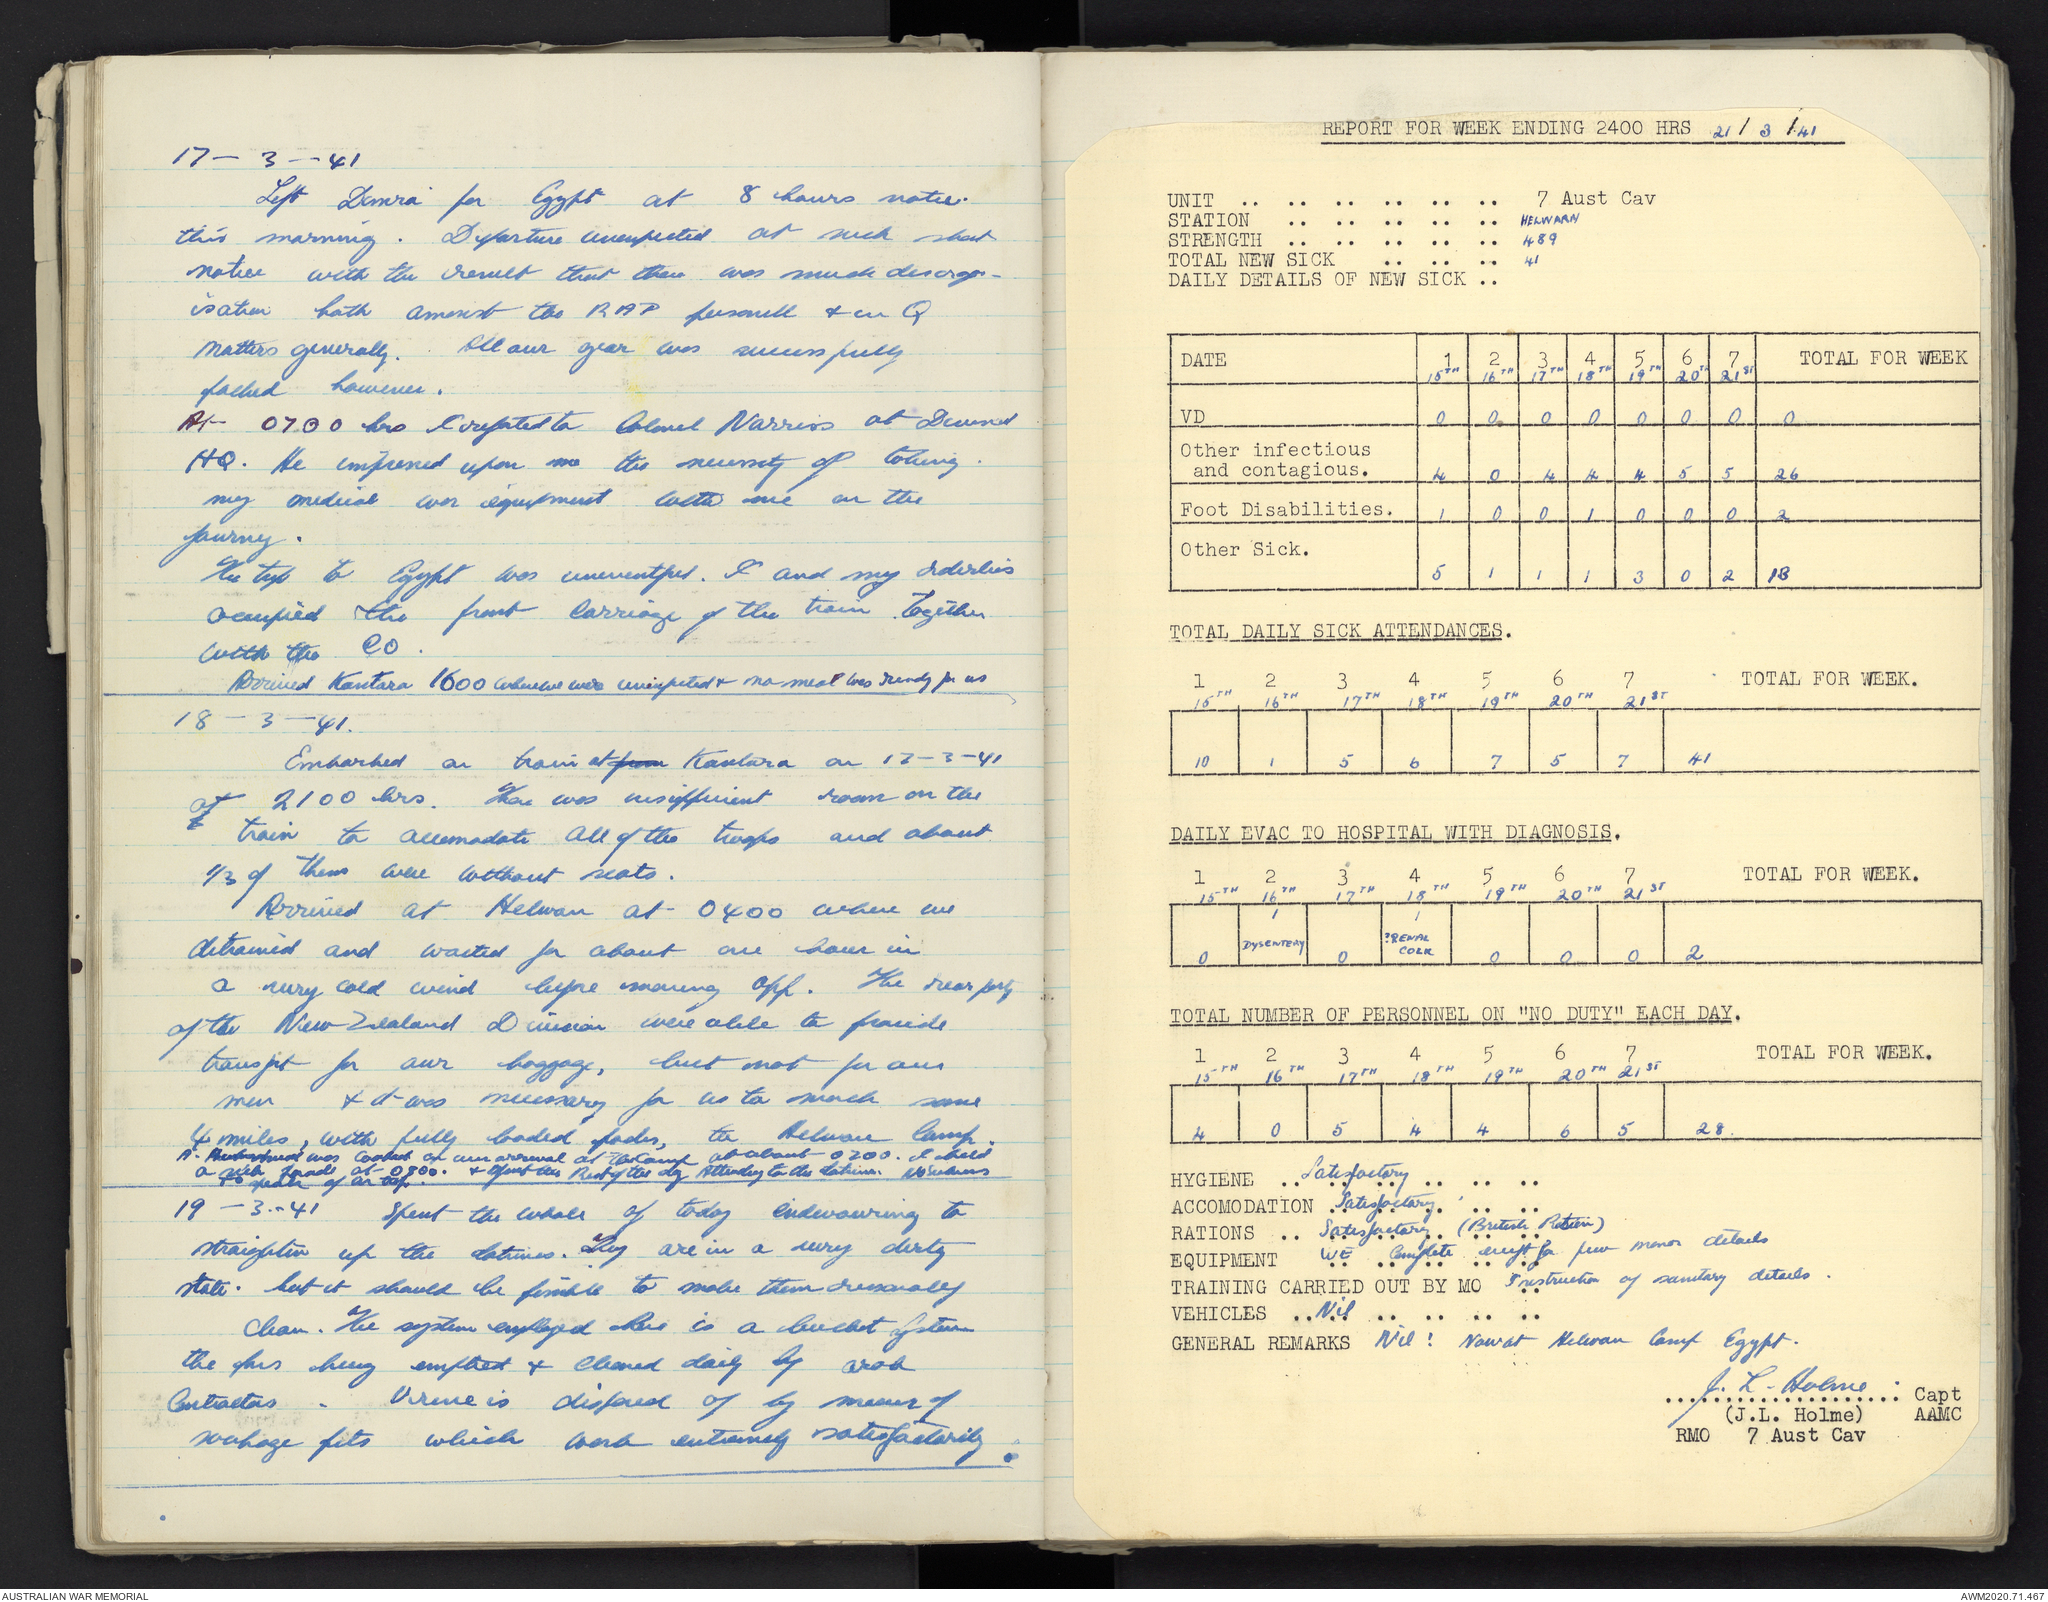 17 - 3 - 41
Left Dimra for Egypt at 8 hours notice
this morning. Departure unexpected at such short
notice with the result that there was much disorgan-
isation both amongst the RAP personell & in Q
matters generally. All our gear was successfully
packed however.
At 0700 hrs I reported to Colonel Norriss at
HQ. He impressed upon me the necessity of taking
my medical war equipment with me on the
journey.
The trip to Egypt was uneventful. I and my orderlies
occupied the front carriage of the train together
with the CO.
Arrived Kantara 1600 where we were unexpected & no meal was ready for us
18 - 3 - 41.
Embarked on train at from Kantara on 17-3-41
at 2100 hrs. There was insufficient room on the
train to accomodate all of the troops and about
1/3 of them were without seats.
Arrived at Helwan at 0400 where we
detrained and waited for about one hour in
a very cold wind before moving off. The rear party
of the New Zealand Division were able to provide
transport for our baggage, but not for our
men & it was necessary for us to march some
4 miles, with fully loaded packs, to Helwan Camp.
A was cooked on our arrival at the Camp at about 0700. I held
a sick parade at 0900. & spent the Rest of the day Attending to the latrines. No
19 - 3 - 41 Spent the whole of today endeavouring to
straighten up the latrines. They are in a very dirty
state. but it should be possible to make them reasonably
clean. The system employed here is a bucket system
the pans being emptied & cleaned daily by arab
Contractors. Urine is disposed of by means of
soakage pits which work extremely satisfactorily.
REPORT FOR WEEK ENDING 2400 HRS 21/3/41
UNIT .. .. .. .. .. .. 7 Aust Cav
STATION .. .. .. .. .. HELWARN
STRENGTH .. .. .. .. .. 489
TOTAL NEW SICK .. .. .. 41
DAILY DETAILS OF NEW SICK ..
DATE 1 2 3 4 5 6 7 TOTAL FOR WEEK
15TH 16TH 17TH 18TH 19TH 20TH 21ST
VD 0 0 0 0 0 0 0 0
Other infectious
and contagious. 4 0 4 4 4 5 5 26
Foot Disabilities. 1 0 0 1 0 0 0 2
Other Sick.
5 1 1 1 3 0 2 13
TOTAL DAILY SICK ATTENDANCES.
1 2 3 4 5 6 7 TOTAL FOR WEEK.
15TH 16TH 17TH 18TH 19TH 20TH 21ST
10 1 5 6 7 5 7 41
DAILY EVAC TO HOSPITAL WITH DIAGNOSIS.
1 2 3 4 5 6 7 TOTAL FOR WEEK.
15TH 16TH 17TH 18TH 19TH 20TH 21ST
1 1
0 DYSENTERY 0 ?RENAL COLIC 0 0 0 2
TOTAL NUMBER OF PERSONNEL ON "NO DUTY" EACH DAY.
1 2 3 4 5 6 7 TOTAL FOR WEEK.
15TH 16TH 17TH 18TH 19TH 20TH 21ST
4 0 5 4 4 6 5 28
HYGIENE .. Satisfactory .. .. ..
ACCOMODATION Satisfactory .. ..
RATIONS .. Satisfactory (British Ration)
EQUIPMENT WE Complete except for few minor details
TRAINING CARRIED OUT BY MO Instruction of sanitary details.
VEHICLES .. Nil .. .. .. ..
GENERAL REMARKS Nil! Now at Helwan Camp Egypt.
J. L. Holme Capt
(J.L. Holme) AAMC
RMO 7 Aust Cav
AUSTRALIAN WAR MEMORIAL
AWM2020.71.467